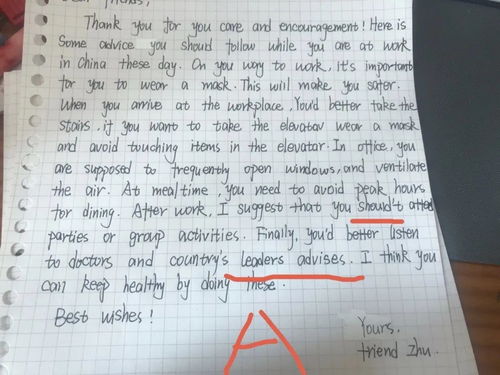 Dear friends,
Thank you for you care and encouragement! Here is
some advice you should follow while you are at work
in China these day. On you way to work, it's important
for you to wear a mask. This will make you safer.
When you arrive at the workplace, You'd better take the
stairs, if you want to take the elevator wear a mask
and avoid touching items in the elevator. In office, you
are supposed to frequently open windows, and ventilate
the air. At mealtime you need to avoid peak hours
for dining. After work, I suggest that you should't attend
parties or group activities. Finally, you'd better listen
to doctors and country's leaders advises. I think you
can keep healthy by doing these.
Best wishes!
A
Yours,
friend Zhu.